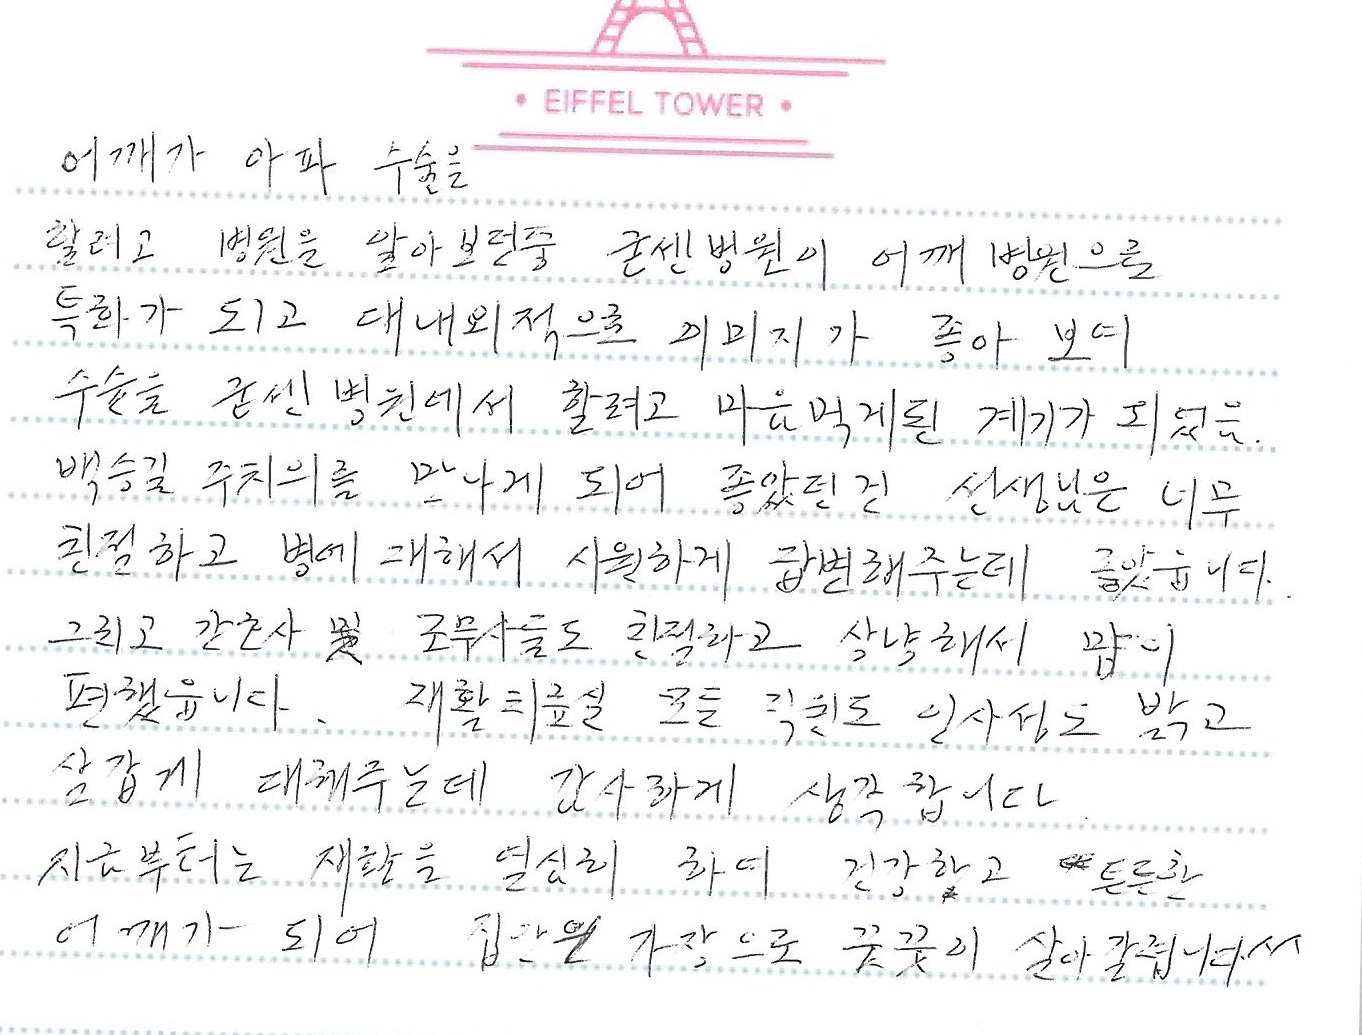 EIFFEL TOWER
어깨가 아파 수술을
할려고 병원을 알아보던중 굳센병원이 어깨 병원으로
특화가 되고 대내외적으로 이미지가 좋아 보여
수술을 굳센병원에서 할려고 마음먹게된 계기가 되었음.
백승길 주치의를 만나게 되어 좋았던건 선생님은 너무
친절하고 병에 대해서 시원하게 답변해주는데 좋았읍니다.
그리고 간호사 및 조무사들도 친절하고 상냥해서 많이
편했읍니다. 재활치료실 모든 직원도 인사성도 밝고
살갑게 대해주는데 감사하게 생각합니다
지금부터는 재활을 열심히 하여 건강하고 튼튼한
어깨가 되어 집안의 가장으로 꿋꿋이 살아갈렵니다.